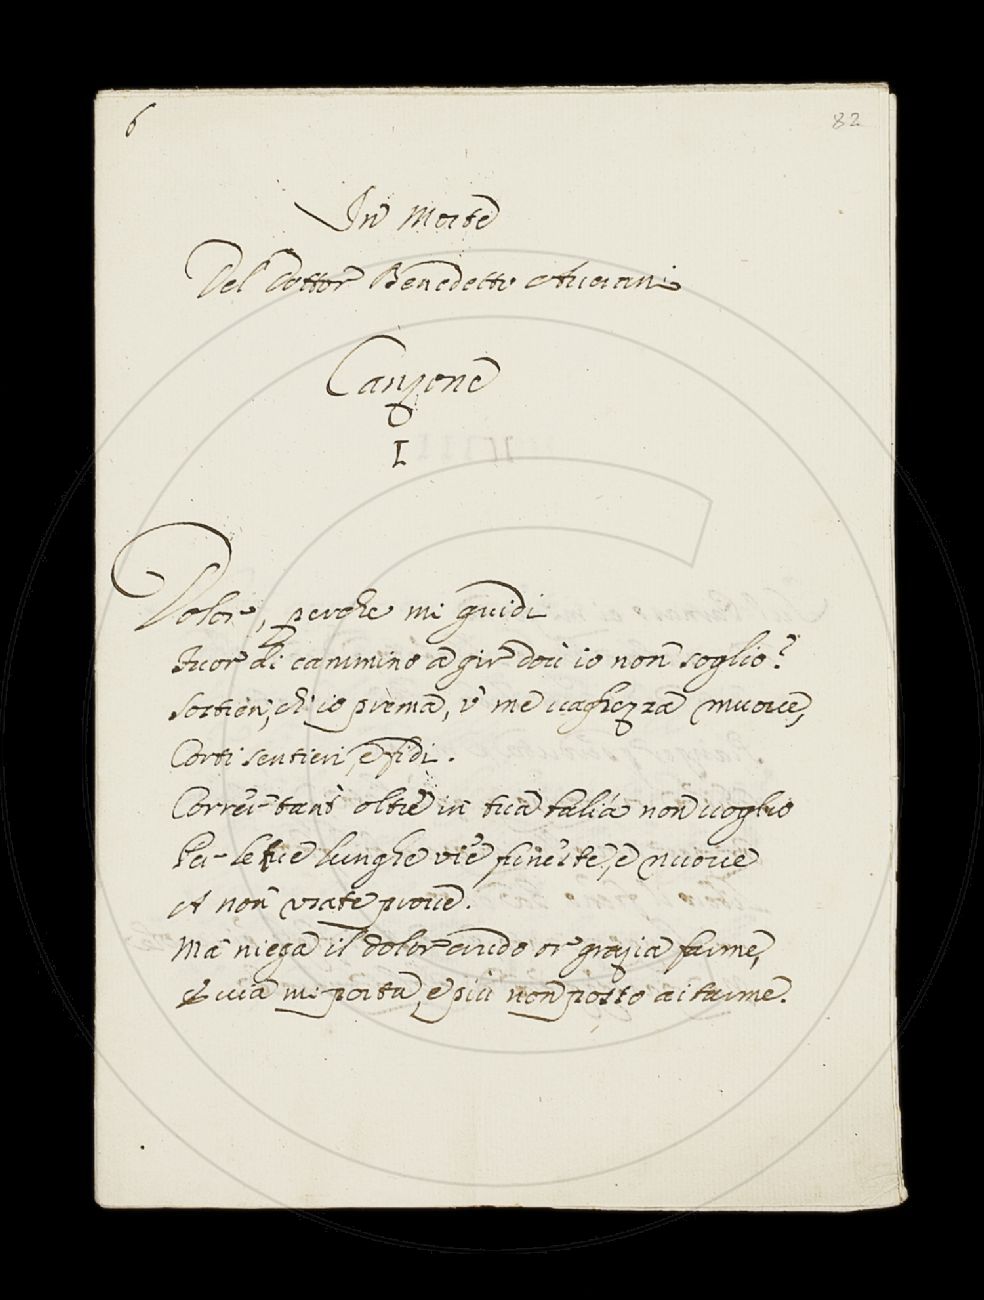 6
82
In Morte
Del Dottor Benedetto Averani
Canzone
I
Dolor, perche mi guidi
Fuor di cammino a gir dov' io non soglio?
Sostien, ch' io prema, u' me vaghezza muove,
Corti sentieri, e fidi.
Correr tant' oltre in tua balìa non voglio
Per le tue lunghe vie funeste, e nuove
A non usate prove.
Ma niega il dolor crudo or grazia farme,
E via mi porta, e più non posso aitarme.